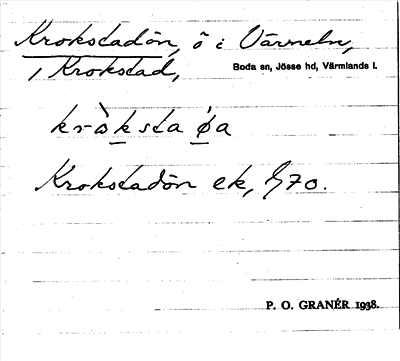 Krokstadön, ö i Värmeln,
i Krokstad,
Boda sn, Jösse hd, Värmlands l.
Krokstadön ek, 570.
P. O. GRANÉR 1938.